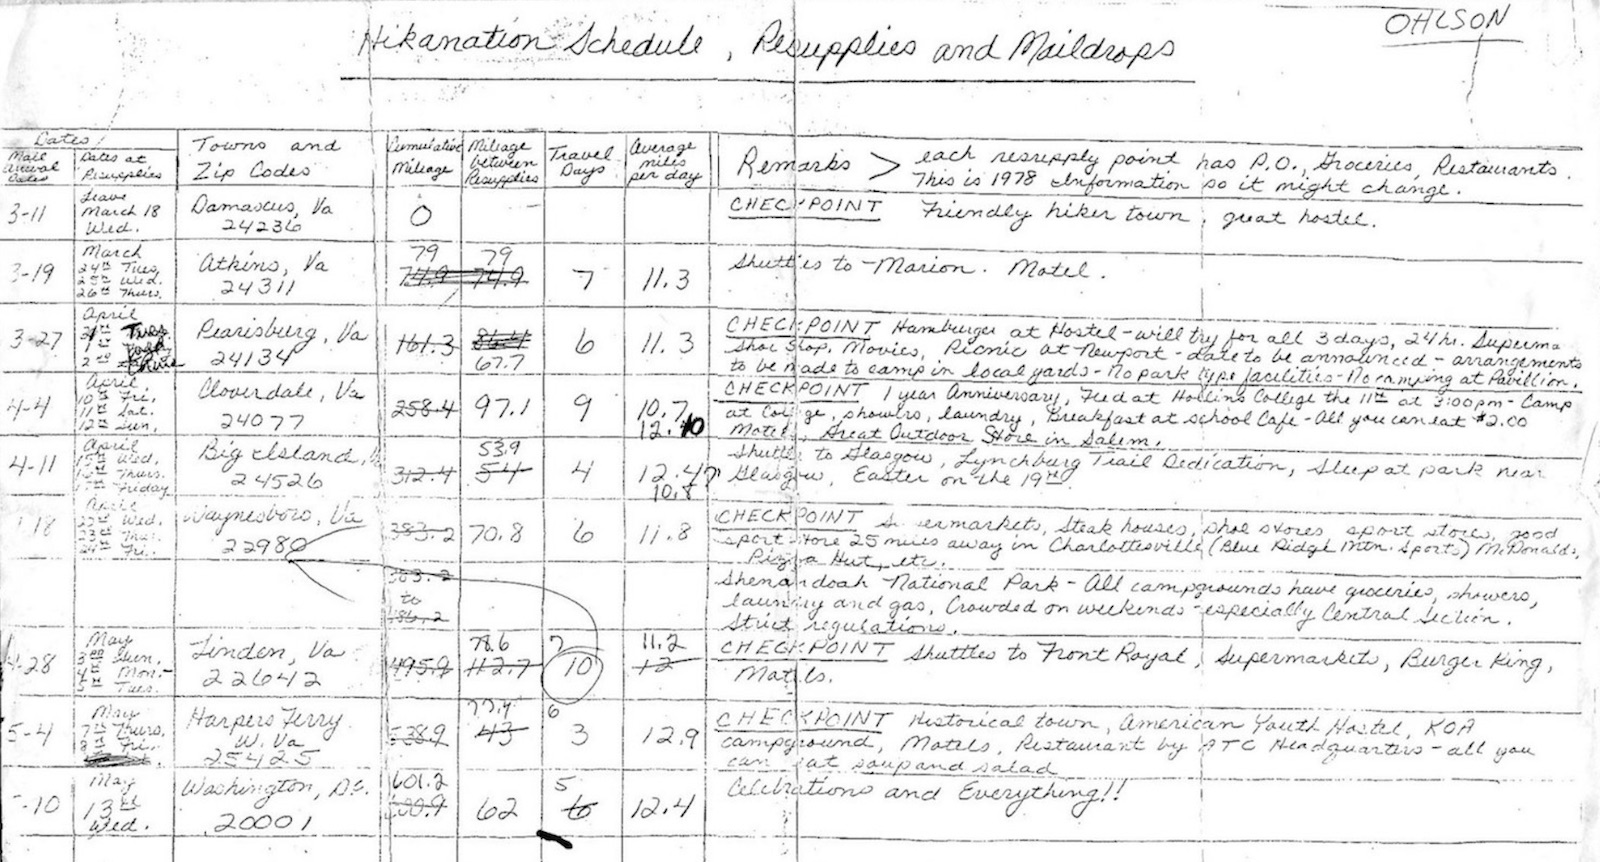 OHLSON
Hikanation Schedule, Resupplies and Maildrops
Dates
Mail Arrival Dates
Dates at Resupplies
Towns and Zip Codes
Cumulative Mileage
Mileage between Resupplies
Travel Days
Average miles per day
Remarks > each resupply point has P.O., Groceries, Restaurants.
This is 1978 Information so it might change.
3-11
Leave March 18 Wed.
Damascus, Va
24236
0
CHECKPOINT Friendly hiker town, great hostel.
3-19
March
24th Tues,
25th Wed.
26th Thurs.
Atkins, Va
24311
79 79
74.9 74.9
7
11.3
Shuttles to Marion. Motel.
3-27
April
1st
2nd
Pearisburg, Va
24134
161.3
67.7
6
11.3
CHECKPOINT Hamburger at Hostel - will try for all 3 days, 24 hr. Superma
Shoe Shop, Movies, Picnic at Newport - date to be announced - arrangements
to be made to camp in local yards - No park type facilities - No camping at Pavillion.
4-4
April
10th Fri,
11th Sat.
12th Sun,
Cloverdale, Va
24077
258.4
97.1
9
10.7
12.10
CHECKPOINT 1 year Anniversary, Feed at Hollins College the 11th at 3:00pm - Camp
at College, showers, laundry, Breakfast at school Cafe - All you can eat $2.00
Motel, Great Outdoor Store in Salem.
4-11
April
Wed,
Thurs.
Friday
Big Island, V
24526
312.4
53.9
54
4
12.4
10.8
Shuttle to Glasgow, Lynchburg Trail Dedication, Sleep at park near
Glasgow, Easter on the 19th.
18
April
22nd Wed.
23rd Thur.
24th Fri.
Waynesboro, Va
22980
383.2
70.8
6
11.8
CHECKPOINT Supermarkets, Steak houses, shoe stores, sport stores, good
sport store 25 miles away in Charlottesville (Blue Ridge Mtn. Sports) McDonalds,
Pizza Hut, etc.
383.2
to
486.2
Shenandoah National Park - All campgrounds have groceries, showers,
laundry and gas, Crowded on weekends - especially Central Section.
Strict regulations.
4-28
May
3rd Sun,
4th Mon.-
5th Tues.
Linden, Va
22642
495.9
78.6
112.7
7
10
11.2
12
CHECKPOINT Shuttles to Front Royal, Supermarkets, Burger King,
Motels.
5-4
May
7th Thurs,
8th Fri.
Harpers Ferry
W. Va
25425
538.9
77.4
43
6
3
12.9
CHECKPOINT Historical town, American Youth Hostel, KOA
campground, Motels, Restaurant by ATC Headquarters - all you
can eat soup and salad
-10
May
13th
Wed.
Washington, D.C.
20001
601.2
600.9
62
5
6
12.4
Celebrations and Everything!!